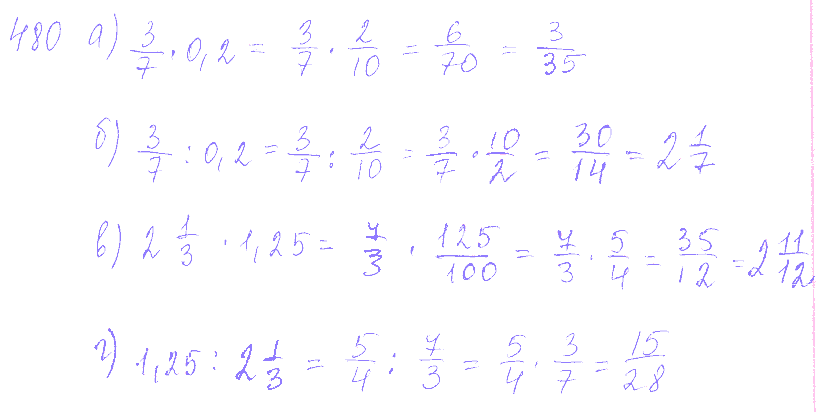 480 а) 3/7 · 0,2 = 3/7 · 2/10 = 6/70 = 3/35
б) 3/7 : 0,2 = 3/7 : 2/10 = 3/7 · 10/2 = 30/14 = 2 1/7
в) 2 1/3 · 1,25 = 7/3 · 125/100 = 7/3 · 5/4 = 35/12 = 2 11/12
г) 1,25 : 2 1/3 = 5/4 : 7/3 = 5/4 · 3/7 = 15/28